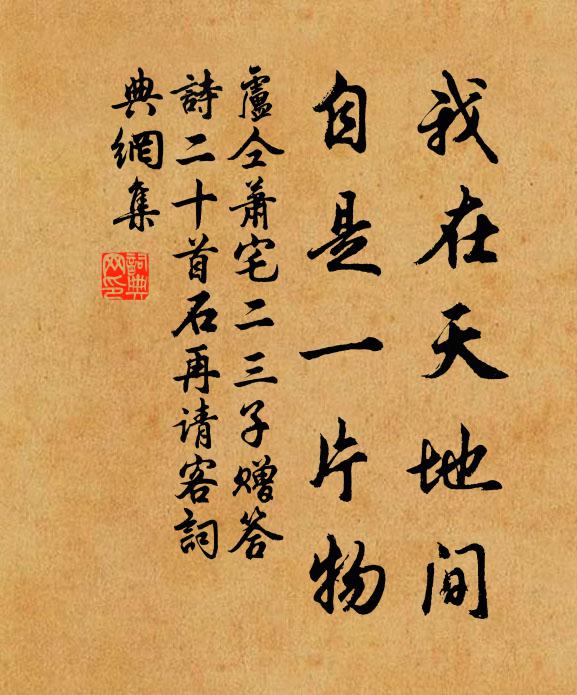 我在天地间
自是一片物
盧仝萧宅二三子赠答
詩二十首石再请客詞
典網集
詞典网印